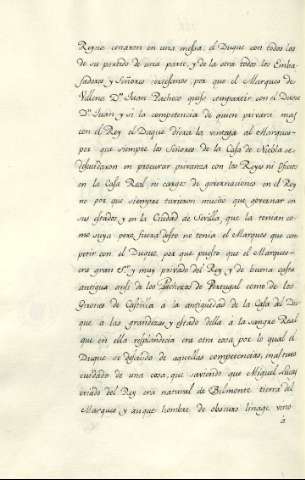 Reyno cenaron en una mesa, el Duque con todos los
de su partido de una parte, y de la otra todos los Emba-
xadores y Señores, porque el Marques de
Villena Dn. Juan Pacheco quiso competir con el Duque
Dn. Juan, y si la competencia de quien privara mas
con el Rey, el Duque diera la ventaja al Marques,
por que siempre los Señores de la Casa de Niebla se
descuidaron en procurar privanza con los Reyes ni Oficios
en la Casa Real ni cargos de governaciones en el Rey
no por que siempre tuvieron mucho que governar en
sus estados, y en la Ciudad de Sevilla, que la tenian co-
mo suya pero fuera desto no tenia el Marques que com
petir con el Duque, por que puesto que el Marques
era gran Sr. y muy privado del Rey, y de buena casta
antigua ansi de los Pachecos de Portugal como de los
Girones de Castilla à la antigüedad de la Casa del Du
que, à las grandezas, y estado della à la sangre Real
que en ella resplandecia era otra cosa, por lo qual el
Duque se descuido de aquellas competencias, mas tuvo
cuidado de una cosa, que saviendo que Miguel Lucas
criado del Rey era natural de Belmonte tierra del
Marques y aunque hombre de obscuro linage vino
à